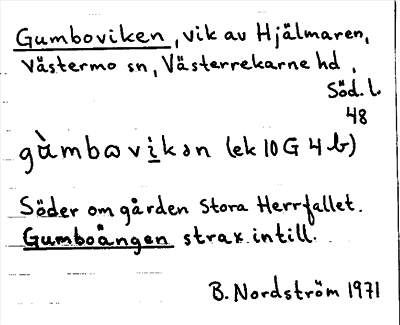 Gumboviken, vik av Hjälmaren,
Västermo sn, Västerrekarne hd,
Söd. l.
48
gàmbωvi̲kən (ek 10 G 4 b)
Söder om gården Stora Herrfallet.
Gumboängen strax intill.
B. Nordström 1971